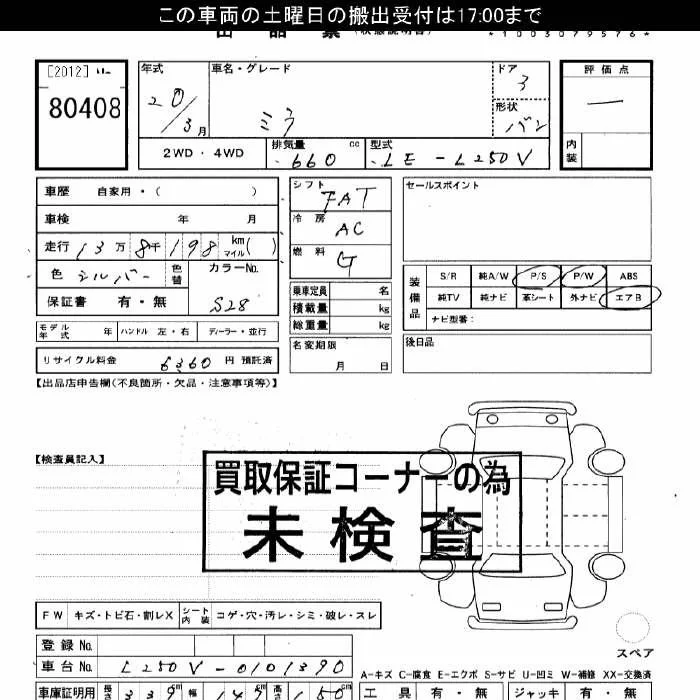 この車両の土曜日の搬出受付は17:00まで
出品票 (状態説明書)
*1003079576*
[2012]
80408
年式
20/3月
車名・グレード
ミラ
ドア
3
形状
バン
評価点
ー
内装
2WD・4WD
排気量 660 cc
型式 LE-L250V
車歴 自家用・( )
車検 年 月
走行 13万8千198 km マイル( )
色 シルバー
色替
カラーNo.
S28
保証書 有・無
モデル年式 年
ハンドル 左・右
ディーラー・並行
リサイクル料金 6360 円 預託済
シフト FAT
冷房 AC
燃料 G
乗車定員 名
積載量 kg
総重量 kg
名変期限
月 日
セールスポイント
装備品
S/R 純A/W P/S P/W ABS
純TV 純ナビ 革シート 外ナビ エアB
ナビ型番:
後日品
【出品店申告欄(不良箇所・欠品・注意事項等)】
【検査員記入】
買取保証コーナーの為
未検査
FW キズ・トビ石・割レX
シート内装 コゲ・穴・汚レ・シミ・破レ・スレ
登録No.
車台No. L250V-0101390
スペア
A-キズ C-腐食 E-エクボ S-サビ U-凹ミ W-補修 XX-交換済
車庫証明用 長さ 339 cm 幅 147 cm 高さ 150 cm
工具 有・無 ジャッキ 有・無